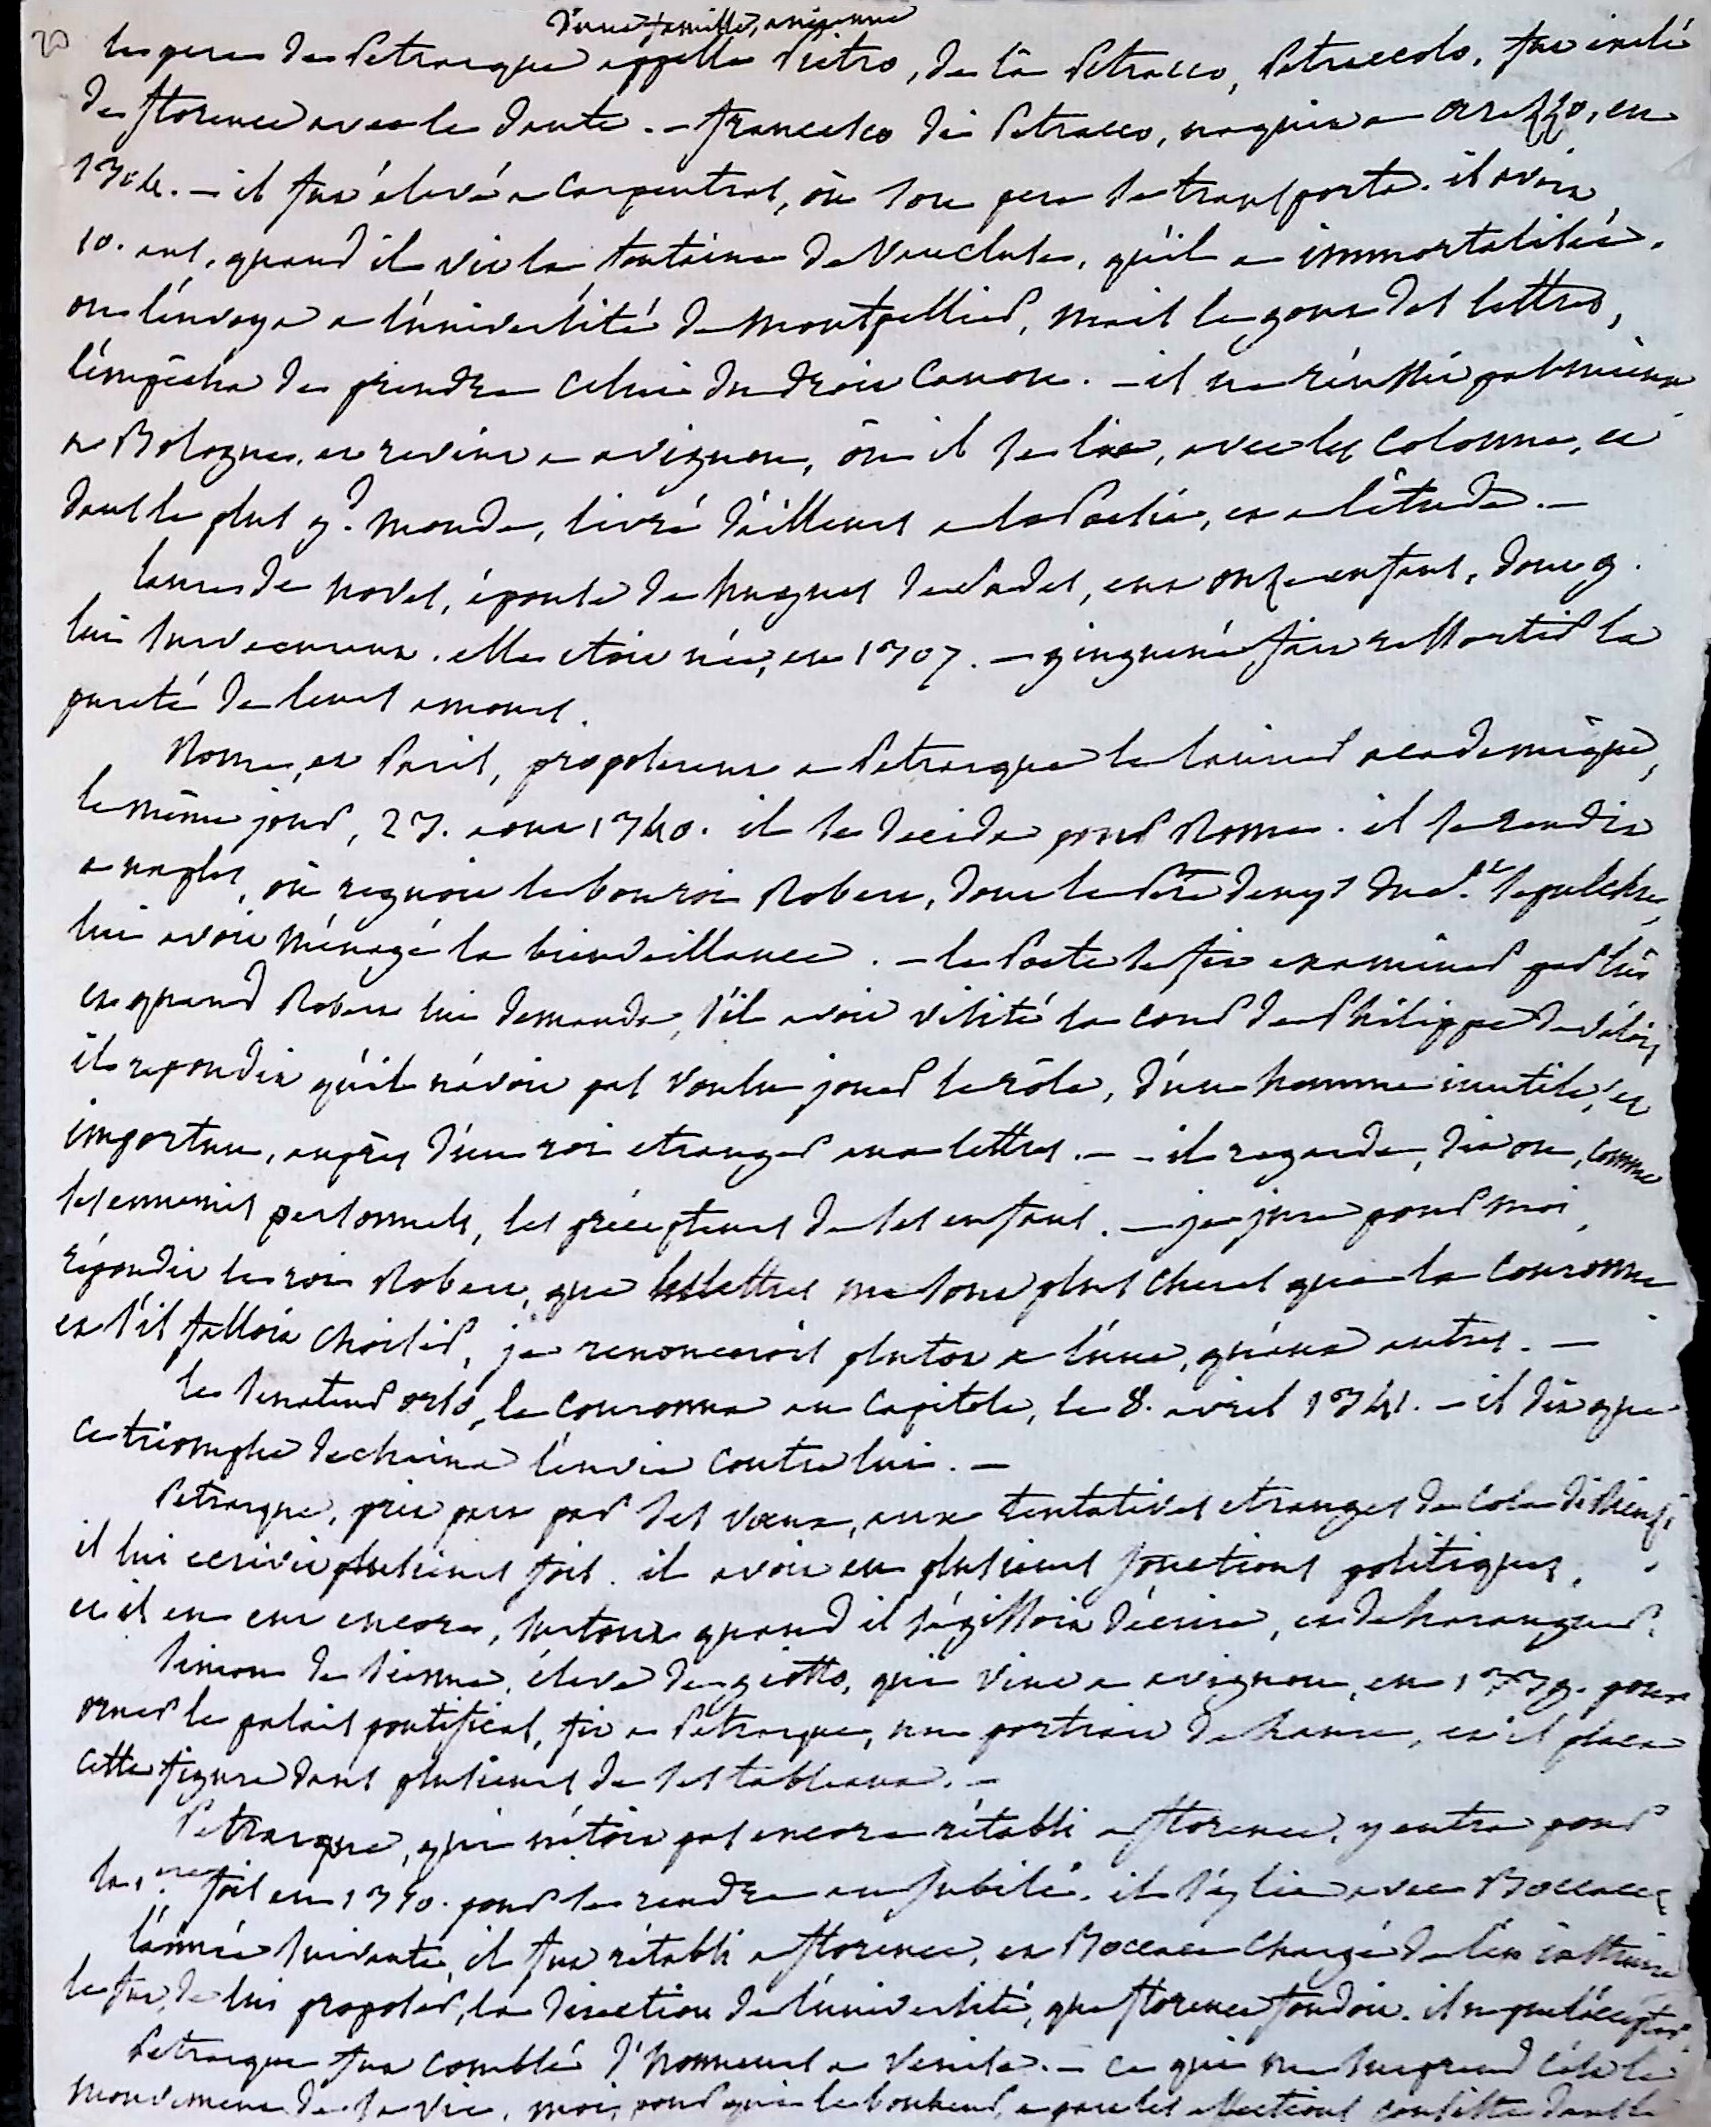 d'une famille, ancienne
20 le pere de Petrarque appellé Pietro, de là Petracco, Petraccolo, fut exilé
de florence avec le dante. — francesco di Petracco, naquit a arezzo, en
1304. — il fut élevé a carpentras, où son pere se transporta. il avoit
10. ans, quand il vit la fontaine de Vaucluse, qu'il a immortalisée.
on l'envoya a l'université de montpellier, mais le gout des lettres,
l'empêcha de prendre celui du droit canon. — il ne réussit pas mieux
a Bologne, et revint a avignon, où il se lia, avec les colonne, et
dans le plus gd. monde, livré d'ailleurs a la Poesie, et a l'étude. —
laure de noves, épouse de hugues de Sades, eut onze enfans, dont 9.
lui survecurent. elle etoit née, en 1307. — ginguené fait ressortir la
pureté de leurs amours.
Rome, et Paris, proposerent a Petrarque le laurier academique,
le même jour, 23. aout 1340. il se decida pour Rome. il se rendit
a naples, où regnoit le bon roi Robert, dont le Pere denys du St. Sepulchre,
lui avoit ménagé la bienveillance. — le Poete se fit examiner par lui
et quand Robert lui demanda, s'il avoit visité la cour de Philippe de Valois
il repondit qu'il n'avoit pas voulu jouer le rôle, d'un homme inutile, et
importun, auprès d'un roi etranger aux lettres. — il regarde, dit on, comme
ses ennemis personnels, les précepteurs de ses enfans. — je jure pour moi,
répondit le roi Robert, que les lettres me sont plus cheres que la couronne
et s'il falloit choisir, je renoncerois plutot a l'une, qu'aux autres. —
le senateur orso, le couronna au capitole, le 8. avril 1341. — il dit que
ce triomphe dechaina l'envie contre lui. —
Petrarque, prit part par ses voeux, aux tentatives etranges de cola di Rienzi
il lui ecrivit plusieurs fois. il avoit eu plusieurs fonctions politiques,
et il en eut encore, surtout quand il s'agissoit d'écrire, et de haranguer.
Simon de Sienne, éleve de giotto, qui vint a avignon, en 1339. pour
orner le palais pontifical, fit a Petrarque, un portrait de Laure, et il plaça
cette figure dans plusieurs de ses tableaux. —
Petrarque, qui n'étoit pas encore rétabli a florence, y entra pour
la 1ere. fois en 1350. pour se rendre au Jubilé. il s'y lia avec Boccace
l'année suivante, il fut rétabli a florence, et Boccace chargé de l'en instruire
le fut, de lui proposer, la direction de l'université, que florence fondoit. il ne put l'accepter
Petrarque fut comblé d'honneurs a Venise. — ce qui me surprend c'est le
mouvement de sa vie, moi, pour qui le bonheur, a part les affections consiste dans le